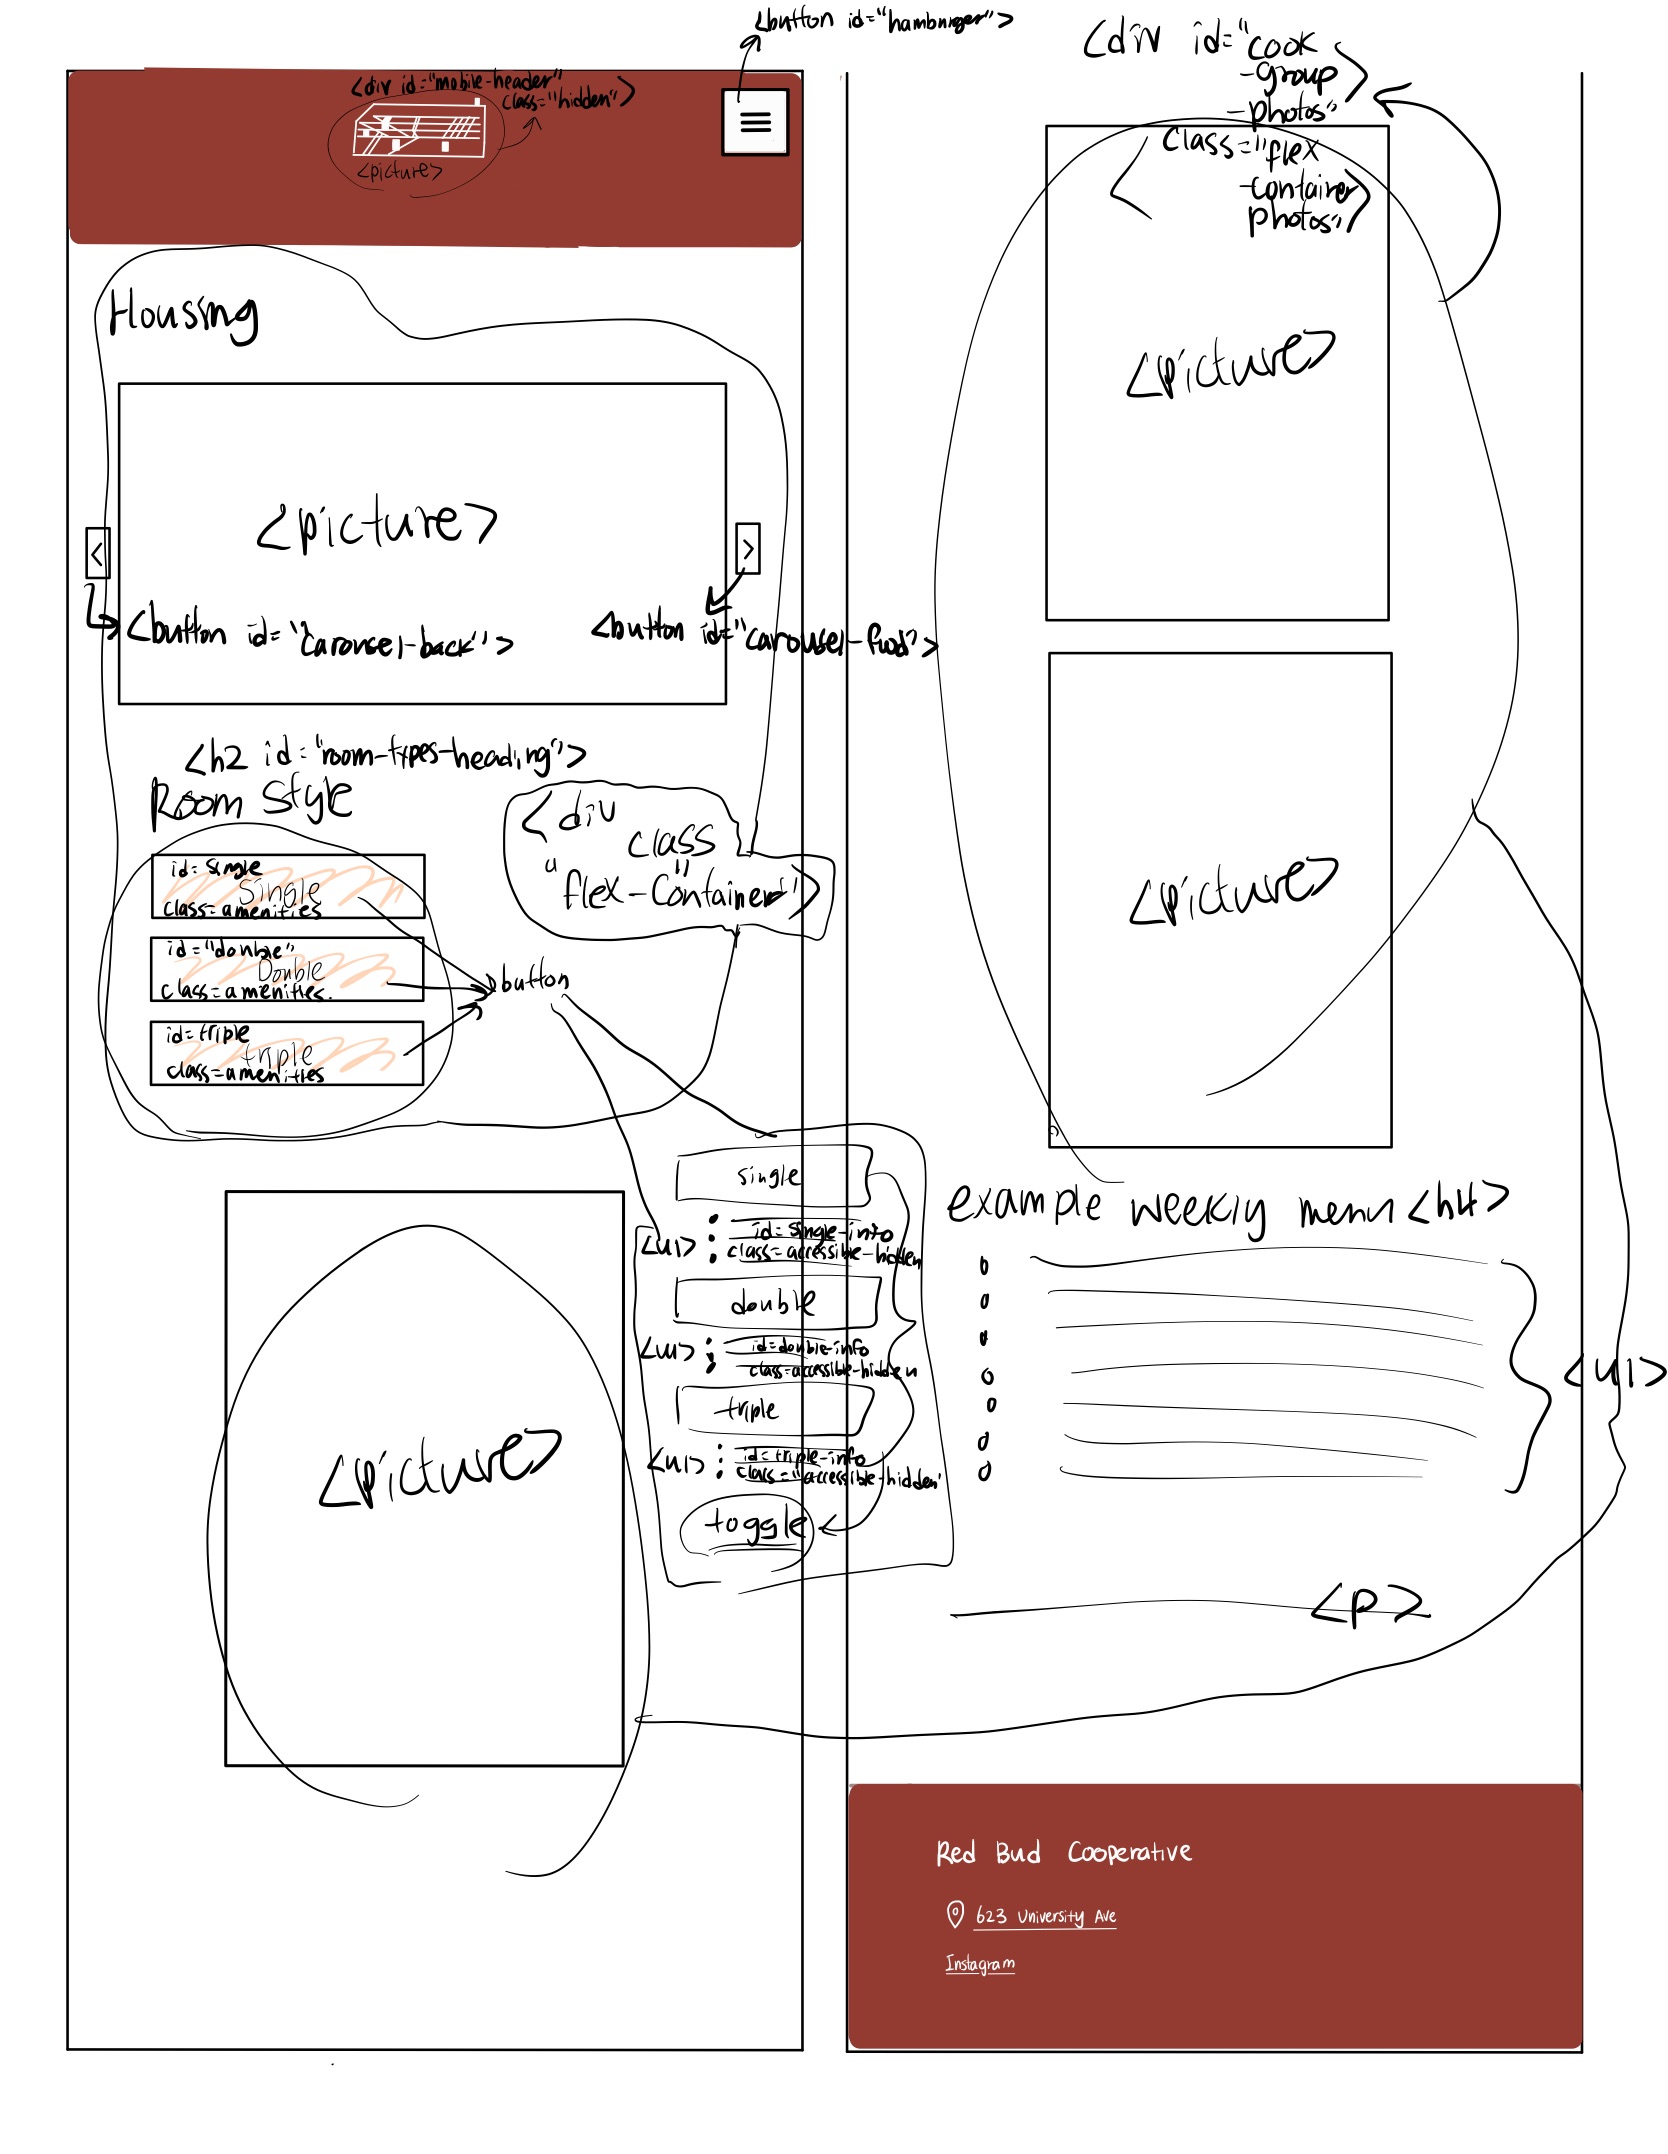 <button id="hamburger">
<div id="mobile-header"
class="hidden">
<picture>
Housing
<picture>
<
>
<button id="carousel-back">
<button id="carousel-fwd">
<h2 id="room-types-heading">
Room Style
<div
class
"flex-container">
id=single
Single
class=amenities
id="double"
Double
class=amenities.
id=triple
triple
class=amenities
button
single
<ul>
id=single-info
class=accessible-hidden
double
<ul>
id=double-info
class=accessible-hidden
triple
<ul>
id=triple-info
class="accessible-hidden"
toggle
<picture>
<div id="cook
-group
-photos"
>
<
class="flex
-container
photos">
<picture>
<picture>
example weekly menu <h4>
<ul>
<p>
Red Bud Cooperative
623 University Ave
Instagram